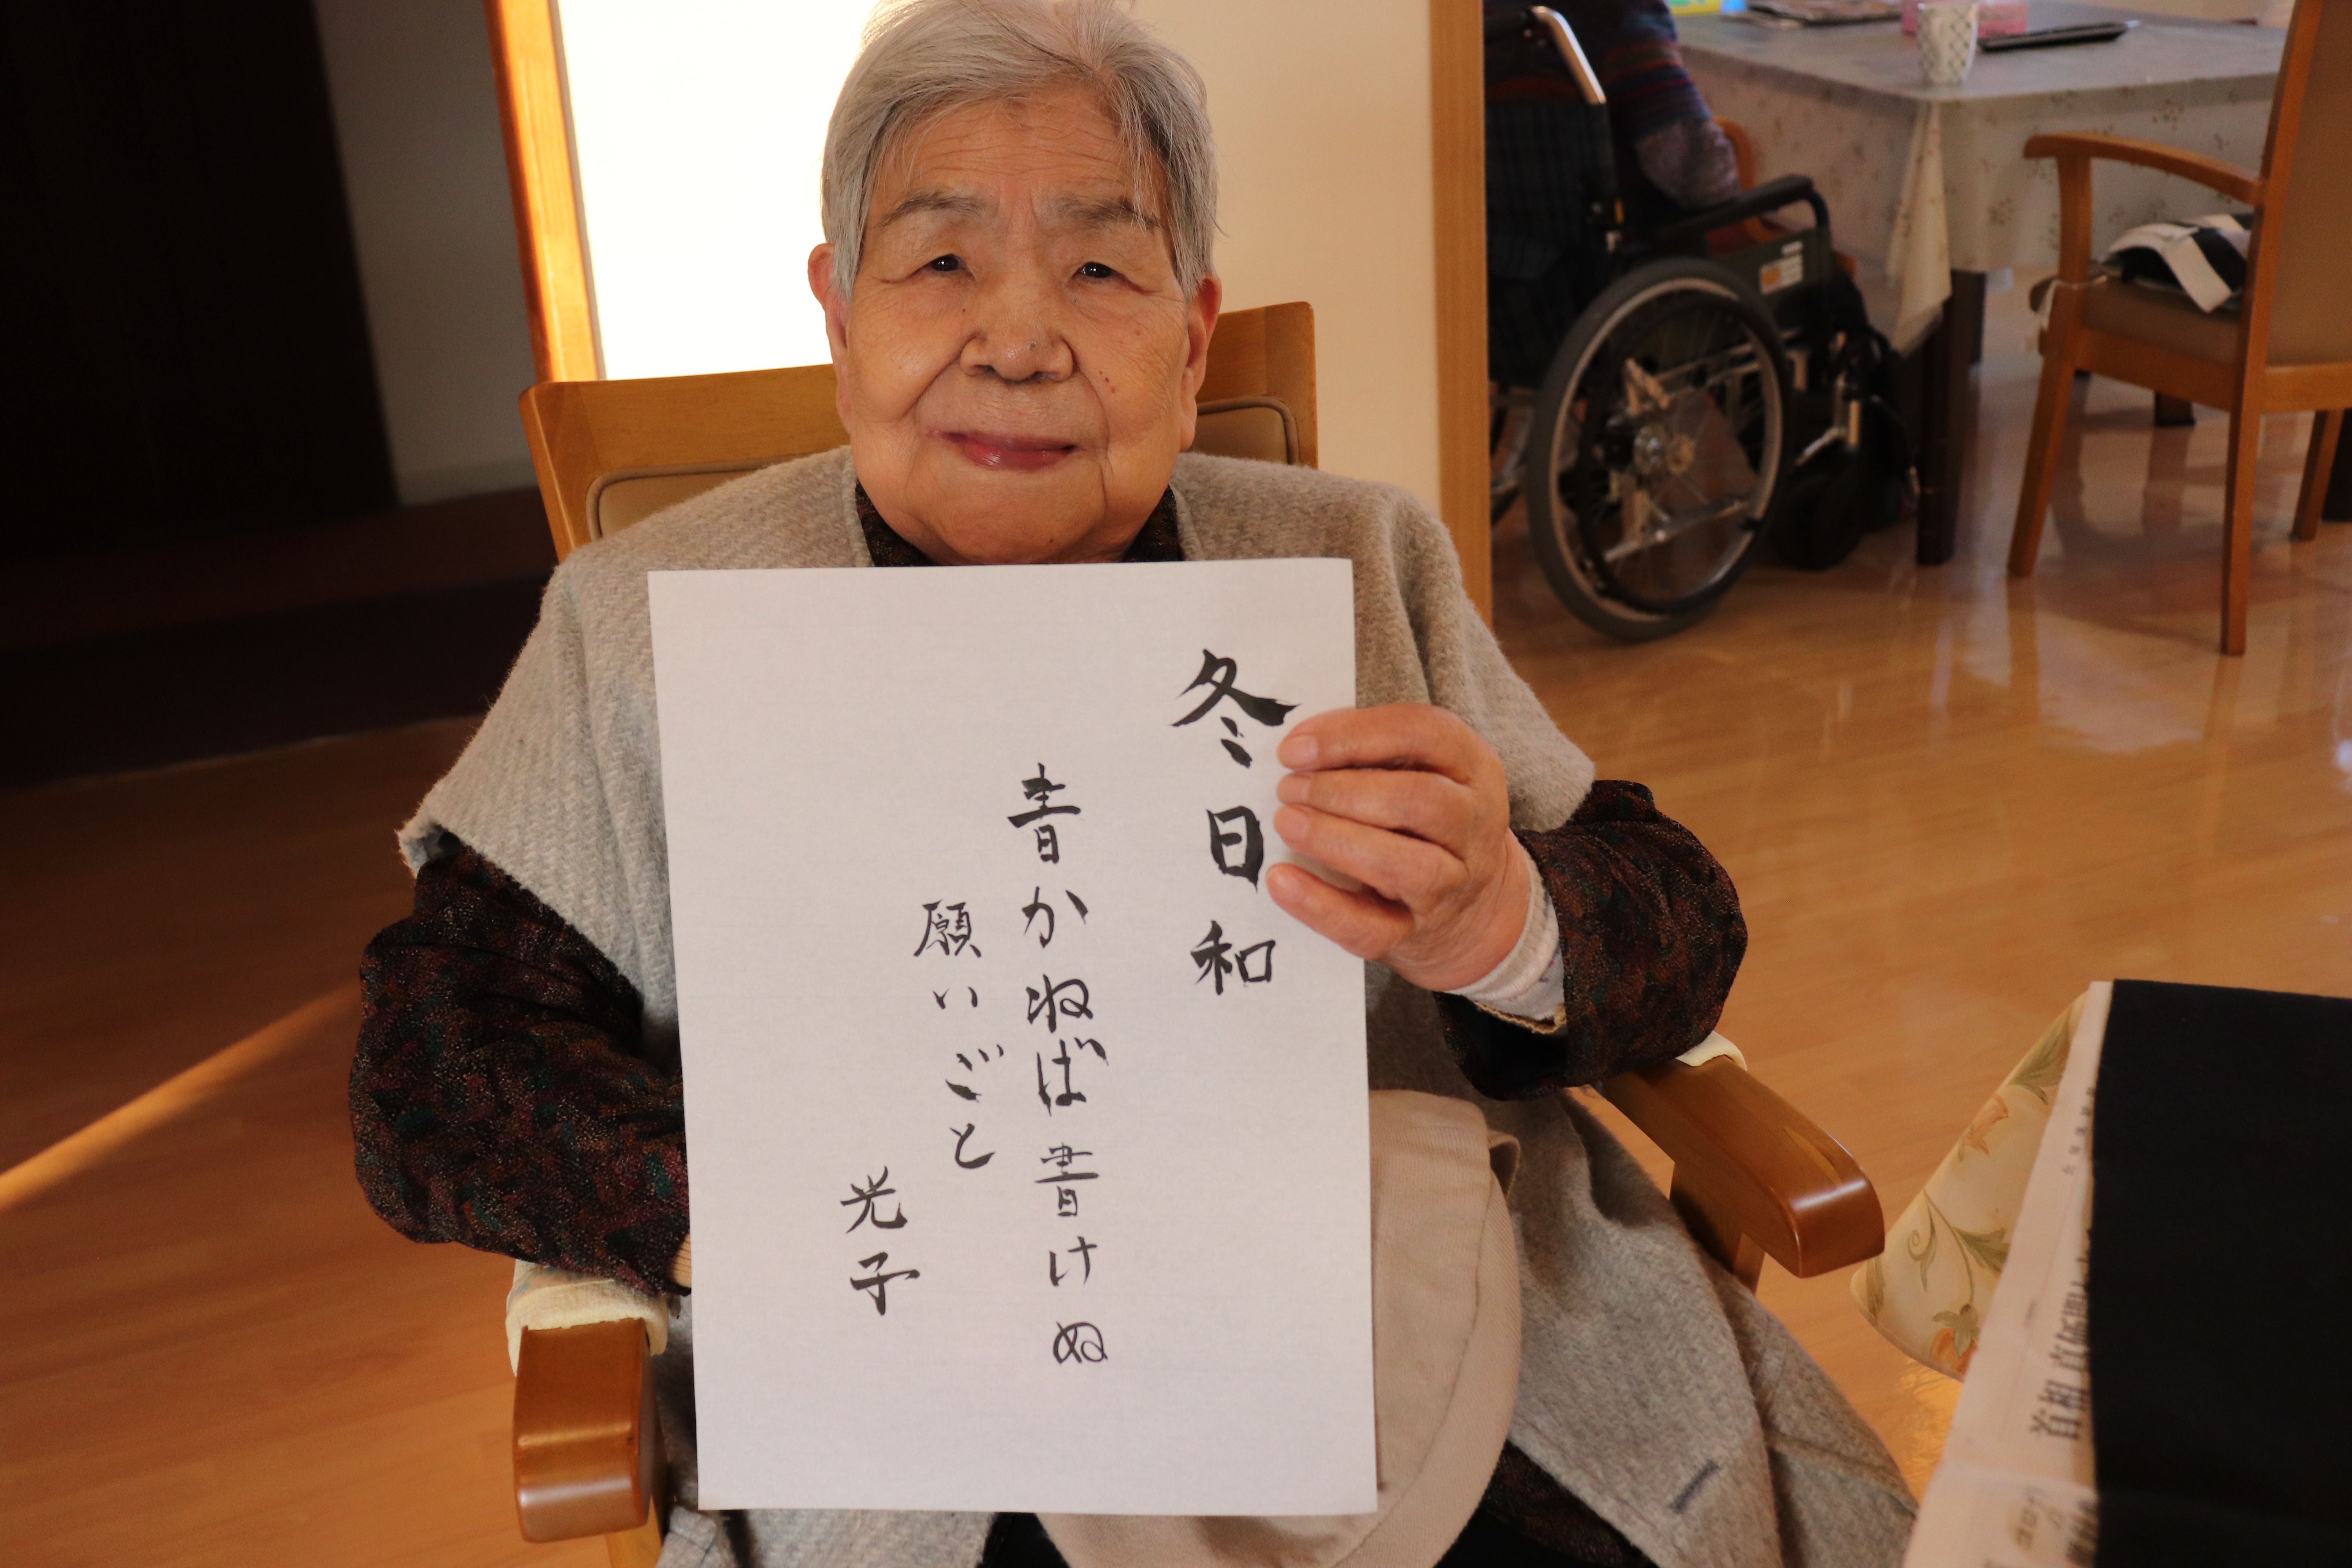 冬日和
書かねば書けぬ
願いごと
光子
首相